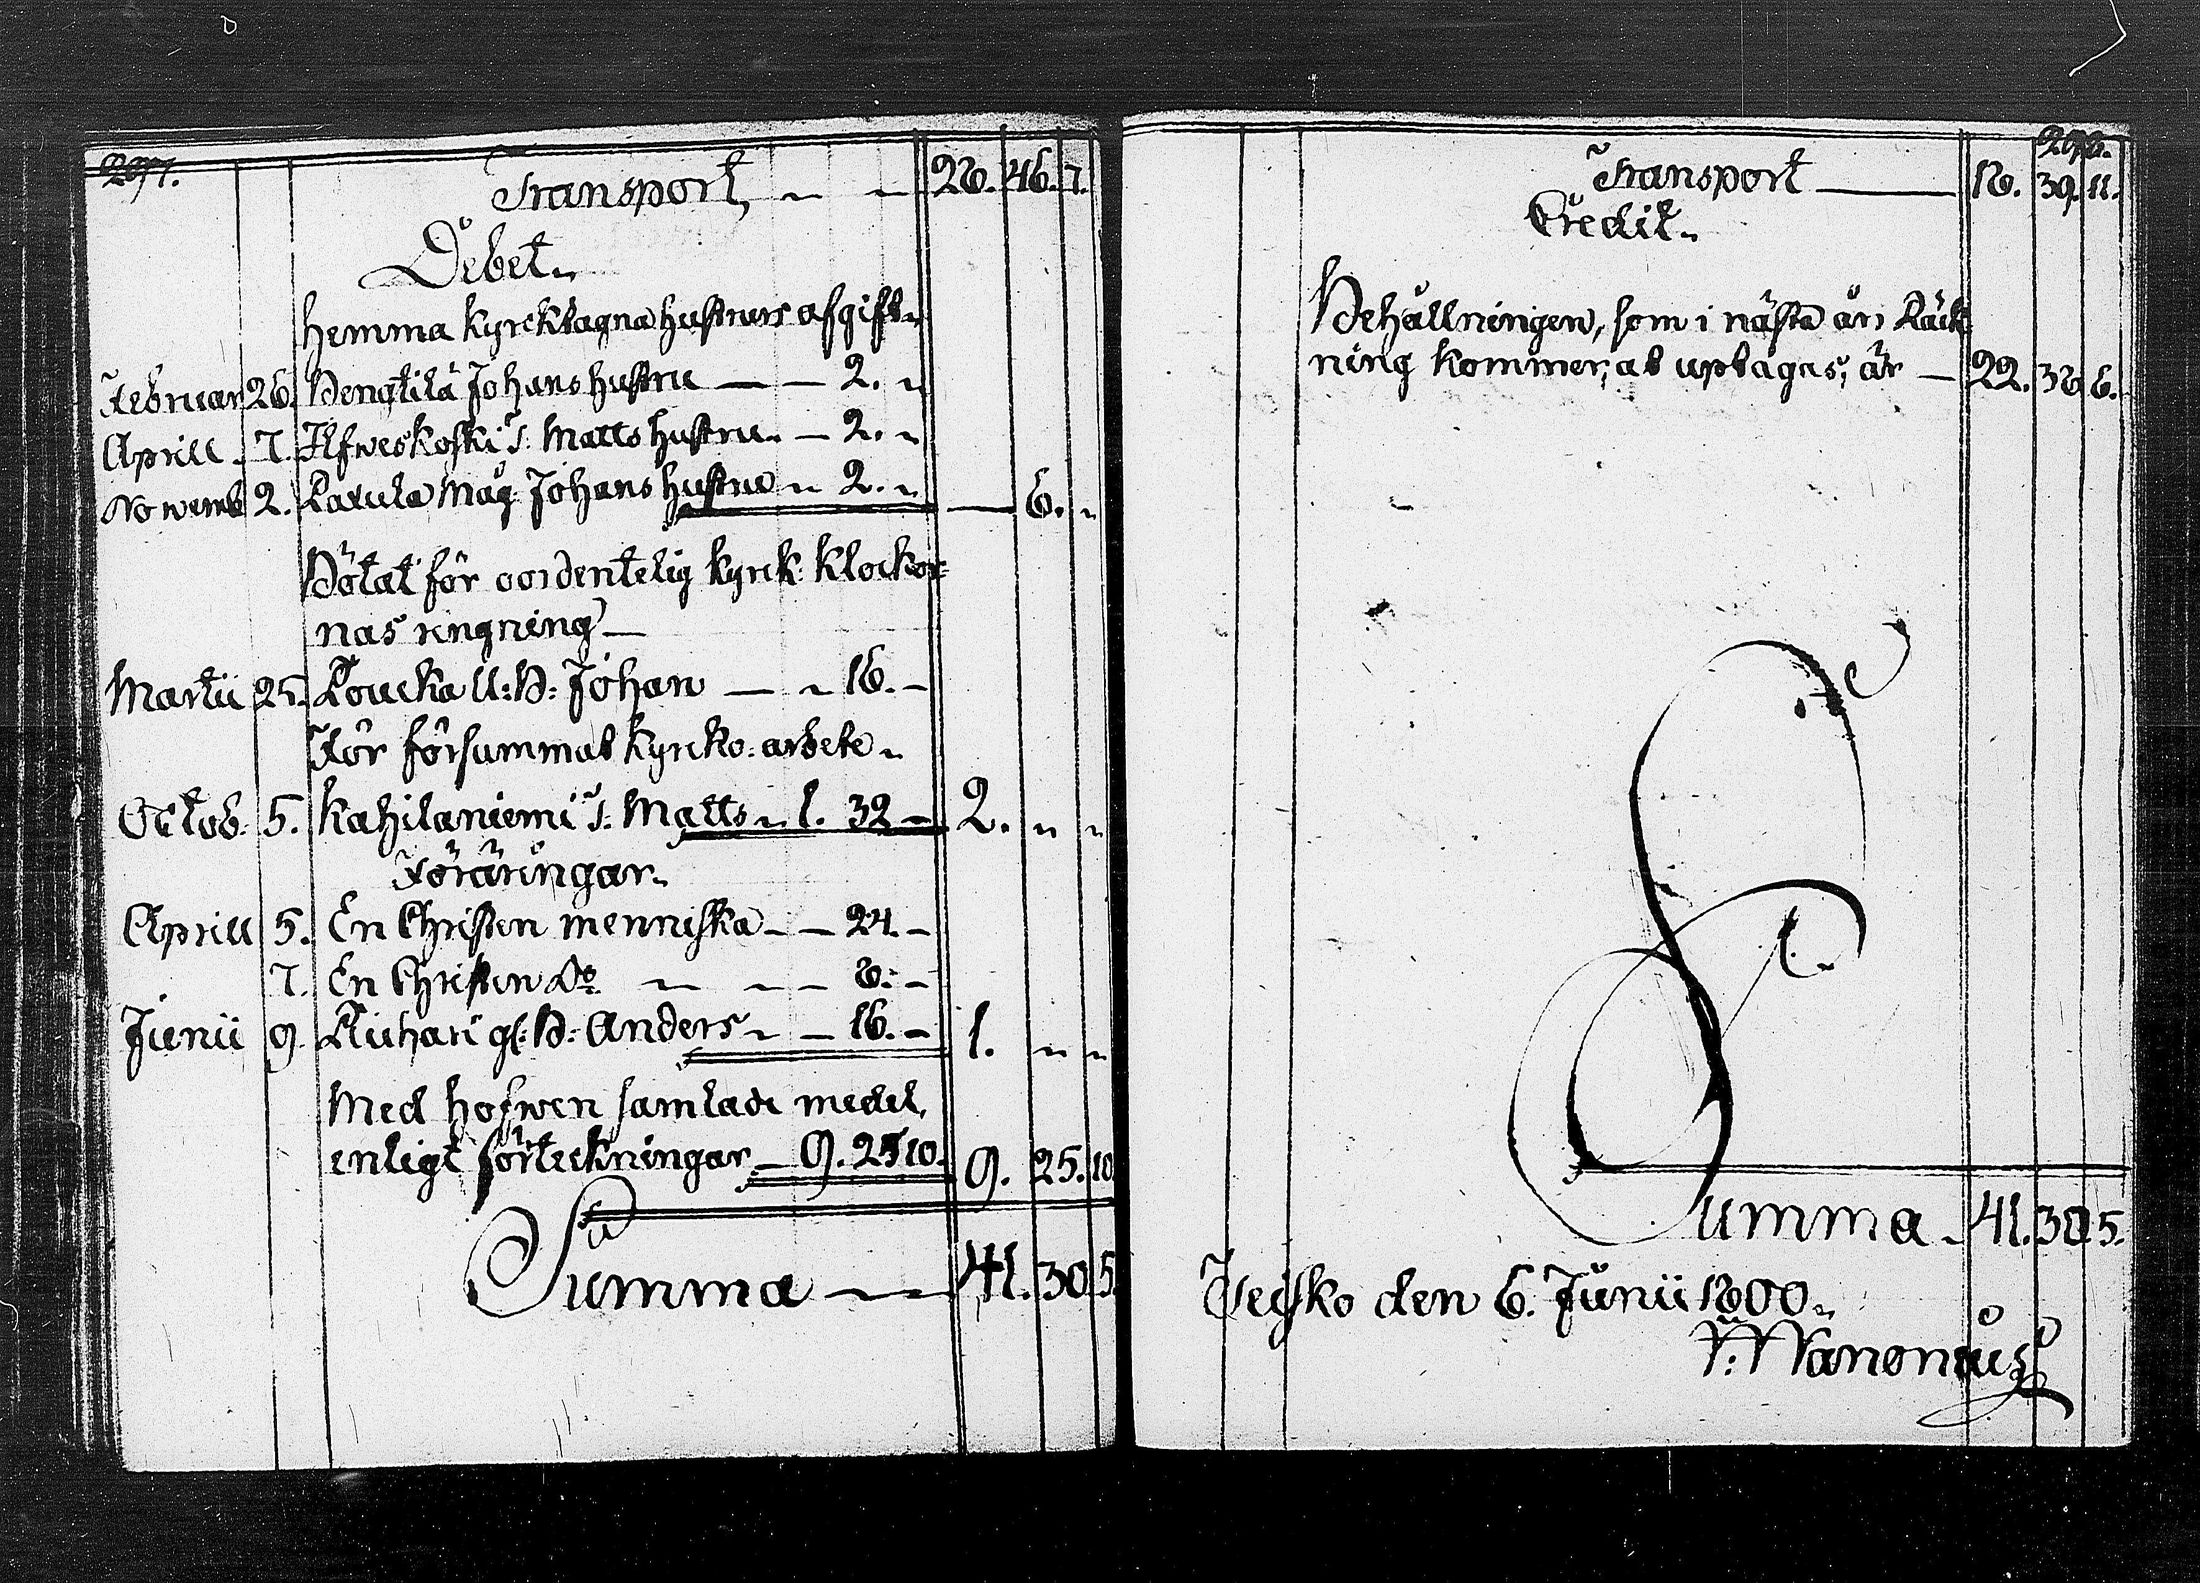 297.
Transport, 28. 46. 7.
Debet.
Hemma Kyrcktagna hustrurs afgift.
Februar 26. Bengtilä Johans hustru — — 2. "
Aprill 7. Ilfweskoski S. Matts hustru. — 2. "
Nowemb 2. Laxula Måg Johans hustru " 2. " — 6. "
Bötat för oordentelig kyrck: klockor=
nas ringning —
Martii 25. Loucka U: B: Johan — " 16. —
För försummat kyrcko: arbete.
Octob. 5. Kahilaniemi S: Matts " 1. 32 — 2. " "
Föräringar.
Aprill 5. En Christen menniska — — 24. —
7. En Christen Do — — 8. —
Junii 9. Riuhari gl: B: Anders — 16. — 1. " "
Med hofwen samlade medel,
enligt förteckningar — 9. 25 10. 9. 25. 10
Summa — 41. 30 5.
298.
Transport — 18. 39. 11.
Credit.
Behållningen, som i nästa års Räck
ning kommer, at uptagas, är — 22. 38 6.
Summa 41. 30 5.
Teisko den 6. Junii 1800.